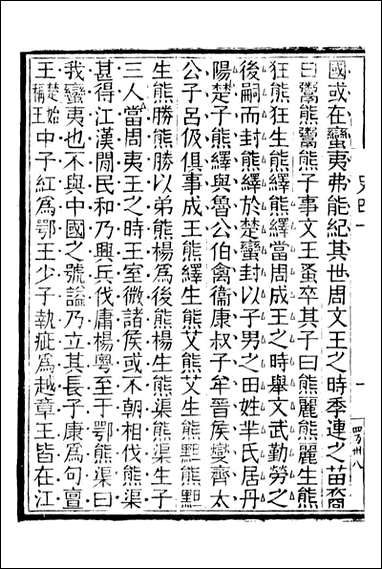 國或在蠻夷弗能紀其世周文王之時季連之苗裔
曰鬻熊鬻熊子事文王蚤卒其子曰熊麗熊麗生熊
狂熊狂生熊繹熊繹當周成王之時舉文武勤勞之
後嗣而封熊繹於楚蠻封以子男之田姓羋氏居丹
陽楚子熊繹與魯公伯禽衞康叔子牟晉侯燮齊太
公子呂伋俱事成王熊繹生熊艾熊艾生熊䵣熊䵣
生熊勝熊勝以弟熊楊爲後熊楊生熊渠熊渠生子
三人當周夷王之時王室微諸侯或不朝相伐熊渠
甚得江漢閒民和乃興兵伐庸楊粵至于鄂熊渠曰
我蠻夷也不與中國之號謚乃立其長子康爲句亶
王楚始稱王中子紅爲鄂王少子執疵爲越章王皆在江